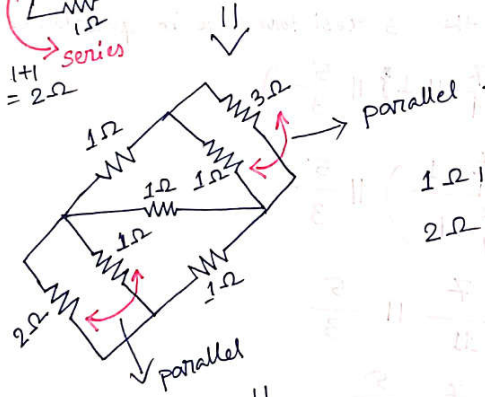 1Ω
series
1+1
= 2Ω
3Ω
parallel
1Ω
1Ω
1Ω
1Ω
1Ω
2Ω
1Ω
2Ω
parallel